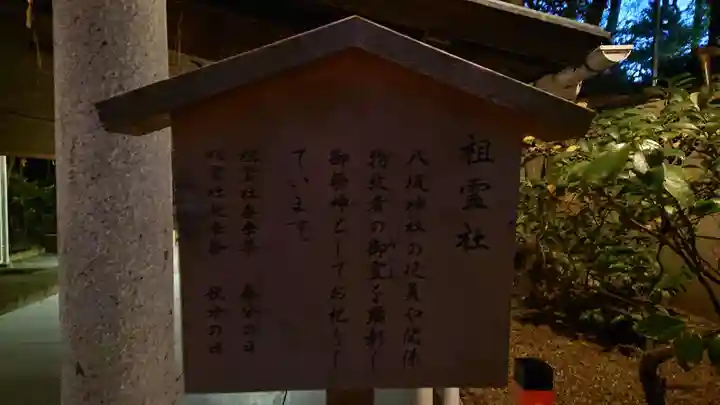 祖霊社
八坂神社の役員や関係
物故者の御霊を顕彰し
御祭神としてお祀りし
ています。
祖霊社春季祭 春分の日
祖霊社秋季祭 秋分の日